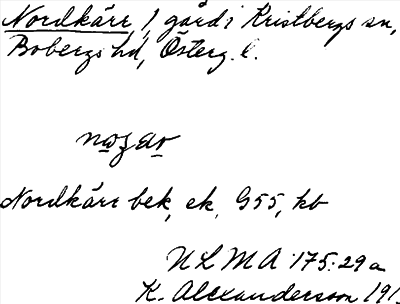 Nordkärr, 1 gård i Kristbergs sn,
Bobergs hd, Österg. l.
Nordkärr bek, ek, G55, kb
NLMA :175:29a
K. Alexanderson 191